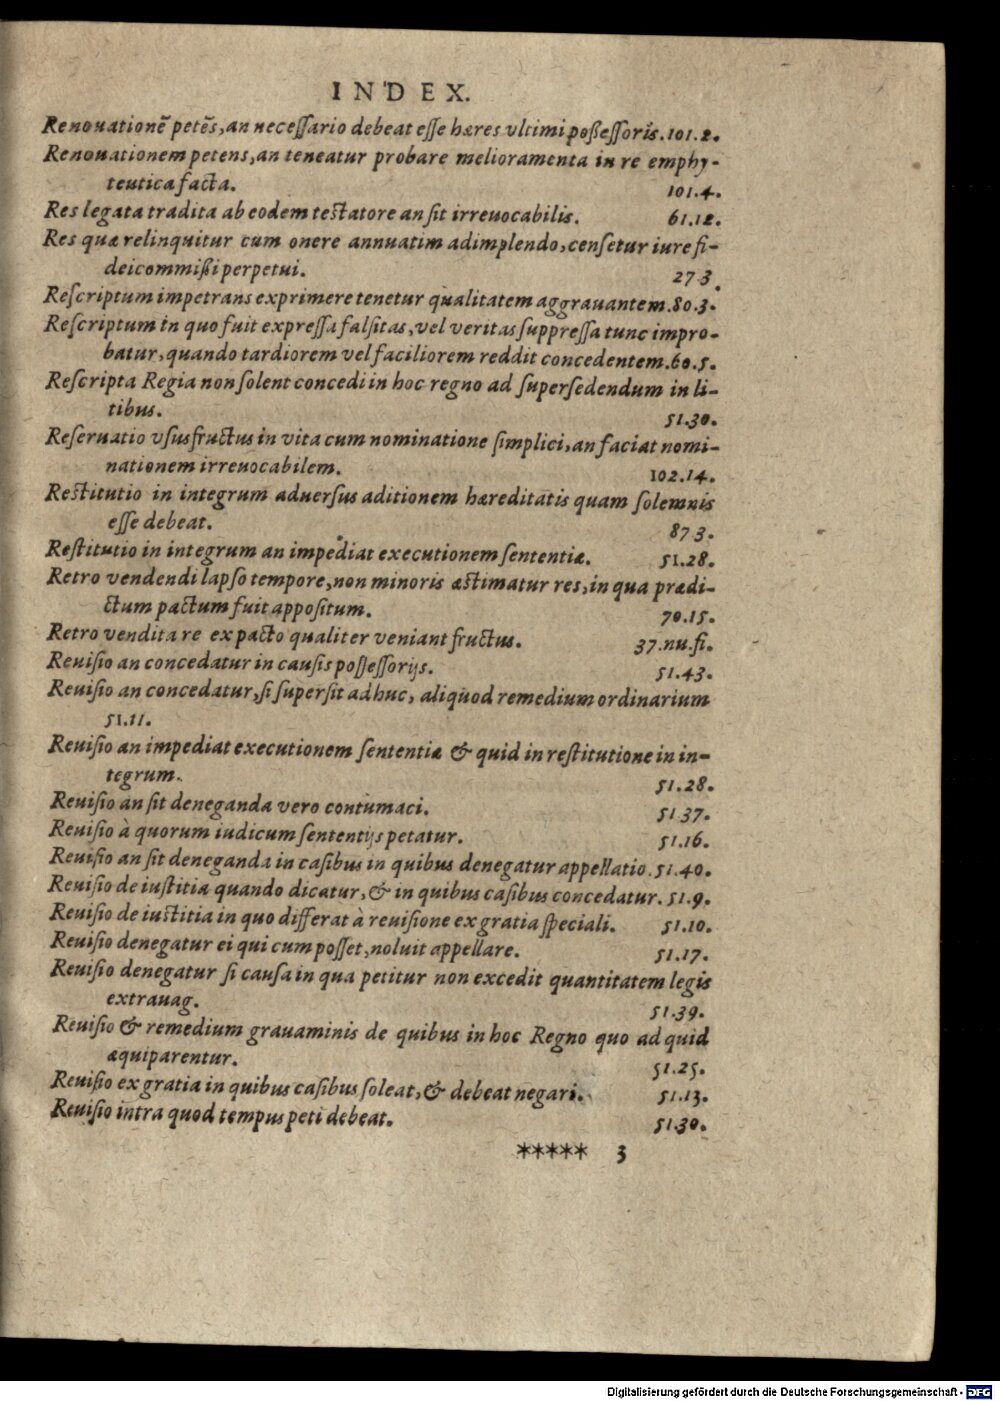 INDEX.
Renouationē petēs, an necessario debeat esse hæres vltimi possessoris. 101.2.
Renouationem petens, an teneatur probare melioramenta in re emphy-
teutica facta. 101.4.
Res legata tradita ab eodem testatore an sit irreuocabilis. 61.12.
Res quæ relinquitur cum onere annuatim adimplendo, censetur iure fi-
deicommissi perpetui. 27 3.
Rescriptum impetrans exprimere tenetur qualitatem aggrauantem. 80.3.
Rescriptum in quo fuit expressa falsitas, vel veritas suppressa tunc impro-
batur, quando tardiorem vel faciliorem reddit concedentem. 60.5.
Rescripta Regia non solent concedi in hoc regno ad supersedendum in li-
tibus. 51.30.
Reseruatio vsusfructus in vita cum nominatione simplici, an faciat nomi-
nationem irreuocabilem. 102.14.
Restitutio in integrum aduersus aditionem hæreditatis quam solemnis
esse debeat. 87 3.
Restitutio in integrum an impediat executionem sententiæ. 51.28.
Retro vendendi lapso tempore, non minoris æstimatur res, in qua prædi-
ctum pactum fuit appositum. 70.15.
Retro vendita re ex pacto qualiter veniant fructus. 37.nu.fi.
Reuisio an concedatur in causis possessorijs. 51.43.
Reuisio an concedatur, si supersit adhuc, aliquod remedium ordinarium
51.11.
Reuisio an impediat executionem sententiæ & quid in restitutione in in-
tegrum. 51.28.
Reuisio an sit deneganda vero contumaci. 51.37.
Reuisio à quorum iudicum sententijs petatur. 51.16.
Reuisio an sit deneganda in casibus in quibus denegatur appellatio. 51.40.
Reuisio de iustitia quando dicatur, & in quibus casibus concedatur. 51.9.
Reuisio de iustitia in quo differat à reuisione ex gratia speciali. 51.10.
Reuisio denegatur ei qui cum posset, noluit appellare. 51.17.
Reuisio denegatur si causa in qua petitur non excedit quantitatem legis
extrauag. 51.39.
Reuisio & remedium grauaminis de quibus in hoc Regno quo ad quid
æquiparentur. 51.25.
Reuisio ex gratia in quibus casibus soleat, & debeat negari. 51.13.
Reuisio intra quod tempus peti debeat. 51.30.
***** 3
Digitalisierung gefördert durch die Deutsche Forschungsgemeinschaft - DFG